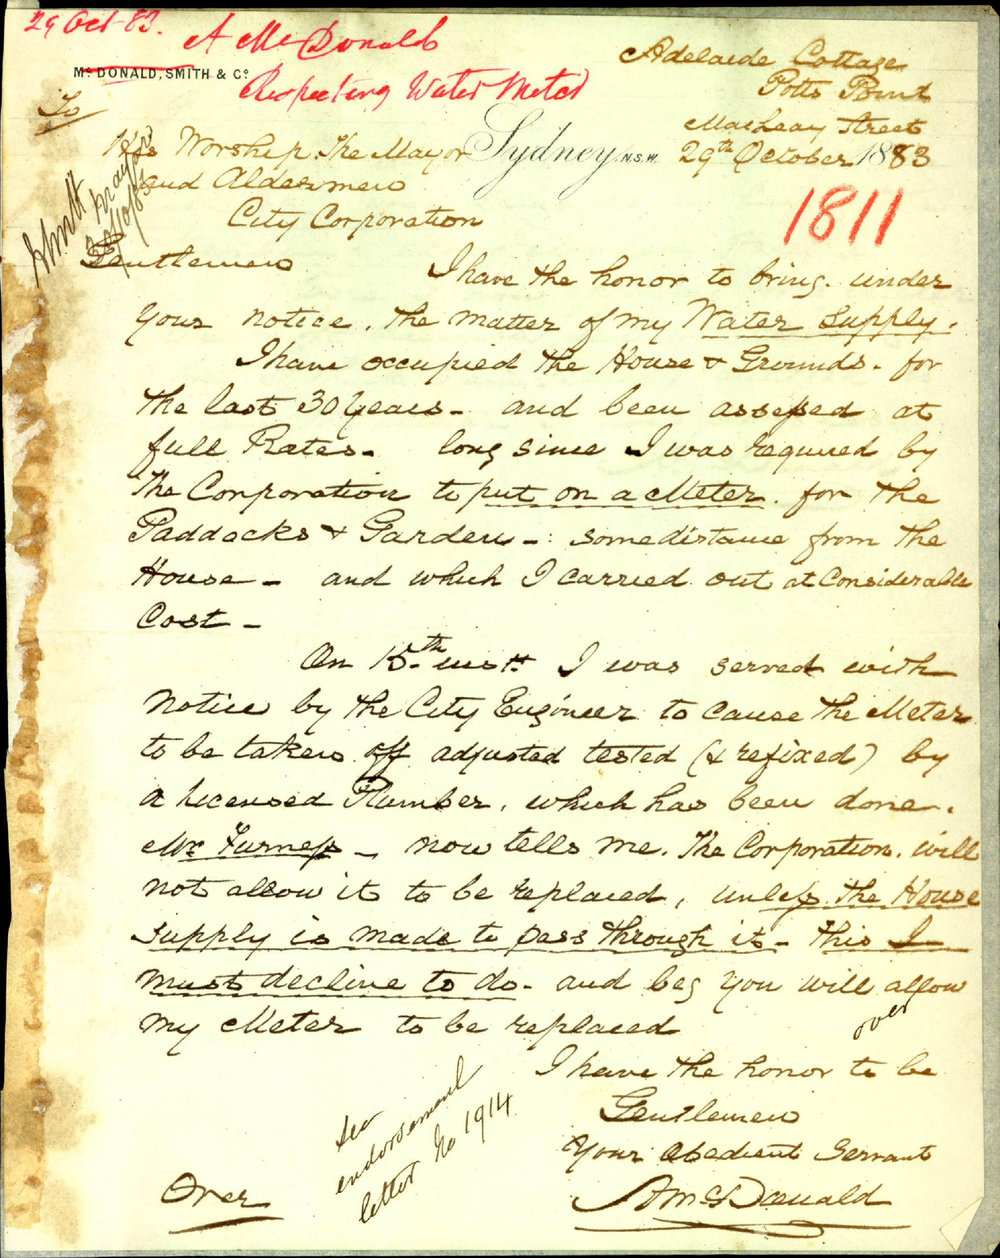 29 Oct 83.
A McDonald
Respecting Water Meter
McDONALD, SMITH & Co
Adelaide Cottage
Potts Point
Macleay Street
Sydney, N.S.W. 29th October 1883
1811
To
His Worship. The Mayor
and Aldermen
City Corporation
Mayor
Gentlemen
I have the honor to bring. under
your notice. the matter of my Water Supply.
I have occupied the House & Grounds. for
the last 30 years - and been assessed at
full Rates - long since I was required by
the Corporation to put on a Meter. for the
Paddocks & Garden - some distance from the
House - and which I carried out at Considerable
Cost -
On 15th inst I was served with
notice by the City Engineer to cause the Meter
to be taken off adjusted tested (& refixed) by
a licensed Plumber. which has been done.
Mr Furness - now tells me. The Corporation. will
not allow it to be replaced, unless the House
supply is made to pass through it - this I
must decline to do - and beg you will allow
my Meter to be replaced
over
I have the honor to be
Gentlemen
Your Obedient Servant
A McDonald
see
endorsement
letter No 1914
Over